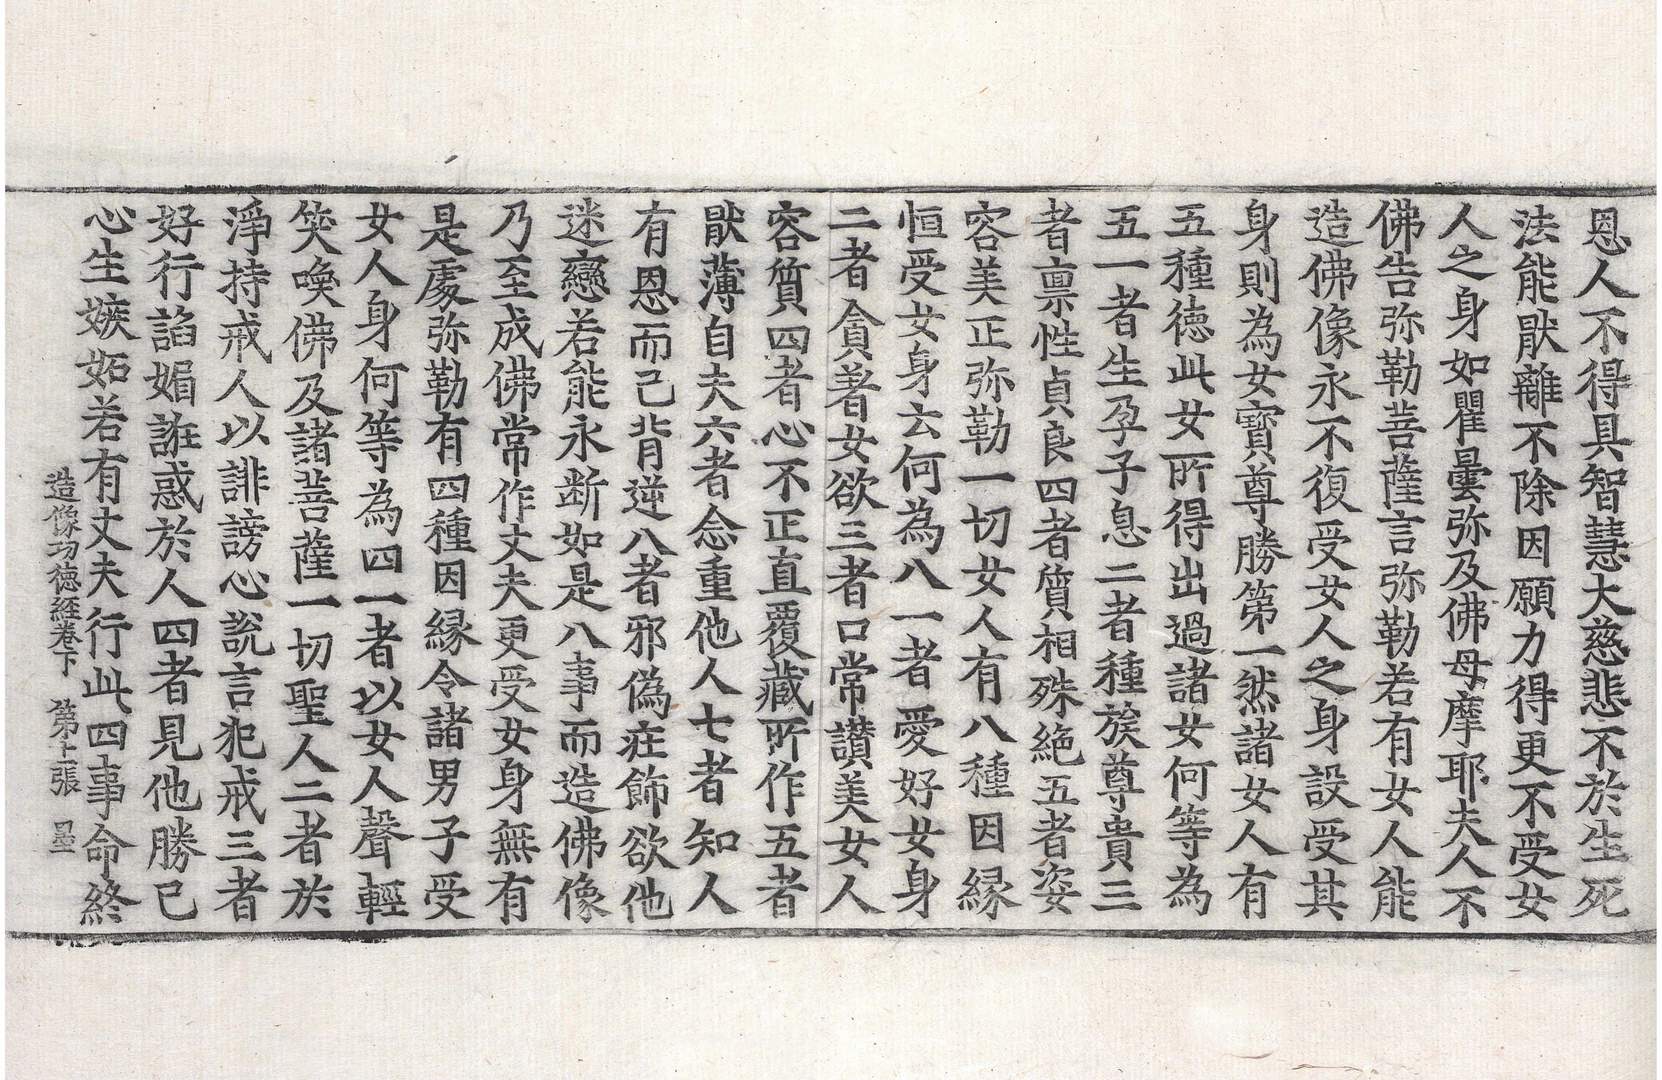 恩人不得具智慧大慈悲不於生死
法能猒離不除因願力得更不受女
人之身如瞿曇弥及佛母摩耶夫人不
佛告弥勒菩薩言弥勒若有女人能
造佛像永不復受女人之身設受其
身則為女寶尊勝第一然諸女人有
五種德此女所得出過諸女何等為
五一者生孕子息二者種族尊貴三
者禀性貞良四者質相殊絶五者姿
容美正弥勒一切女人有八種因緣
恒受女身云何為八一者愛好女身
二者貪著女欲三者口常讃美女人
容質四者心不正直覆藏所作五者
猒薄自夫六者念重他人七者知人
有恩而己背逆八者邪偽莊飾欲他
迷戀若能永断如是八事而造佛像
乃至成佛常作丈夫更受女身無有
是處弥勒有四種因緣令諸男子受
女人身何等為四一者以女人聲輕
笑喚佛及諸菩薩一切聖人二者於
淨持戒人以誹謗心說言犯戒三者
好行諂媚誑惑於人四者見他勝己
心生嫉妬若有丈夫行此四事命終
造像功德經卷下　第十二張　墨